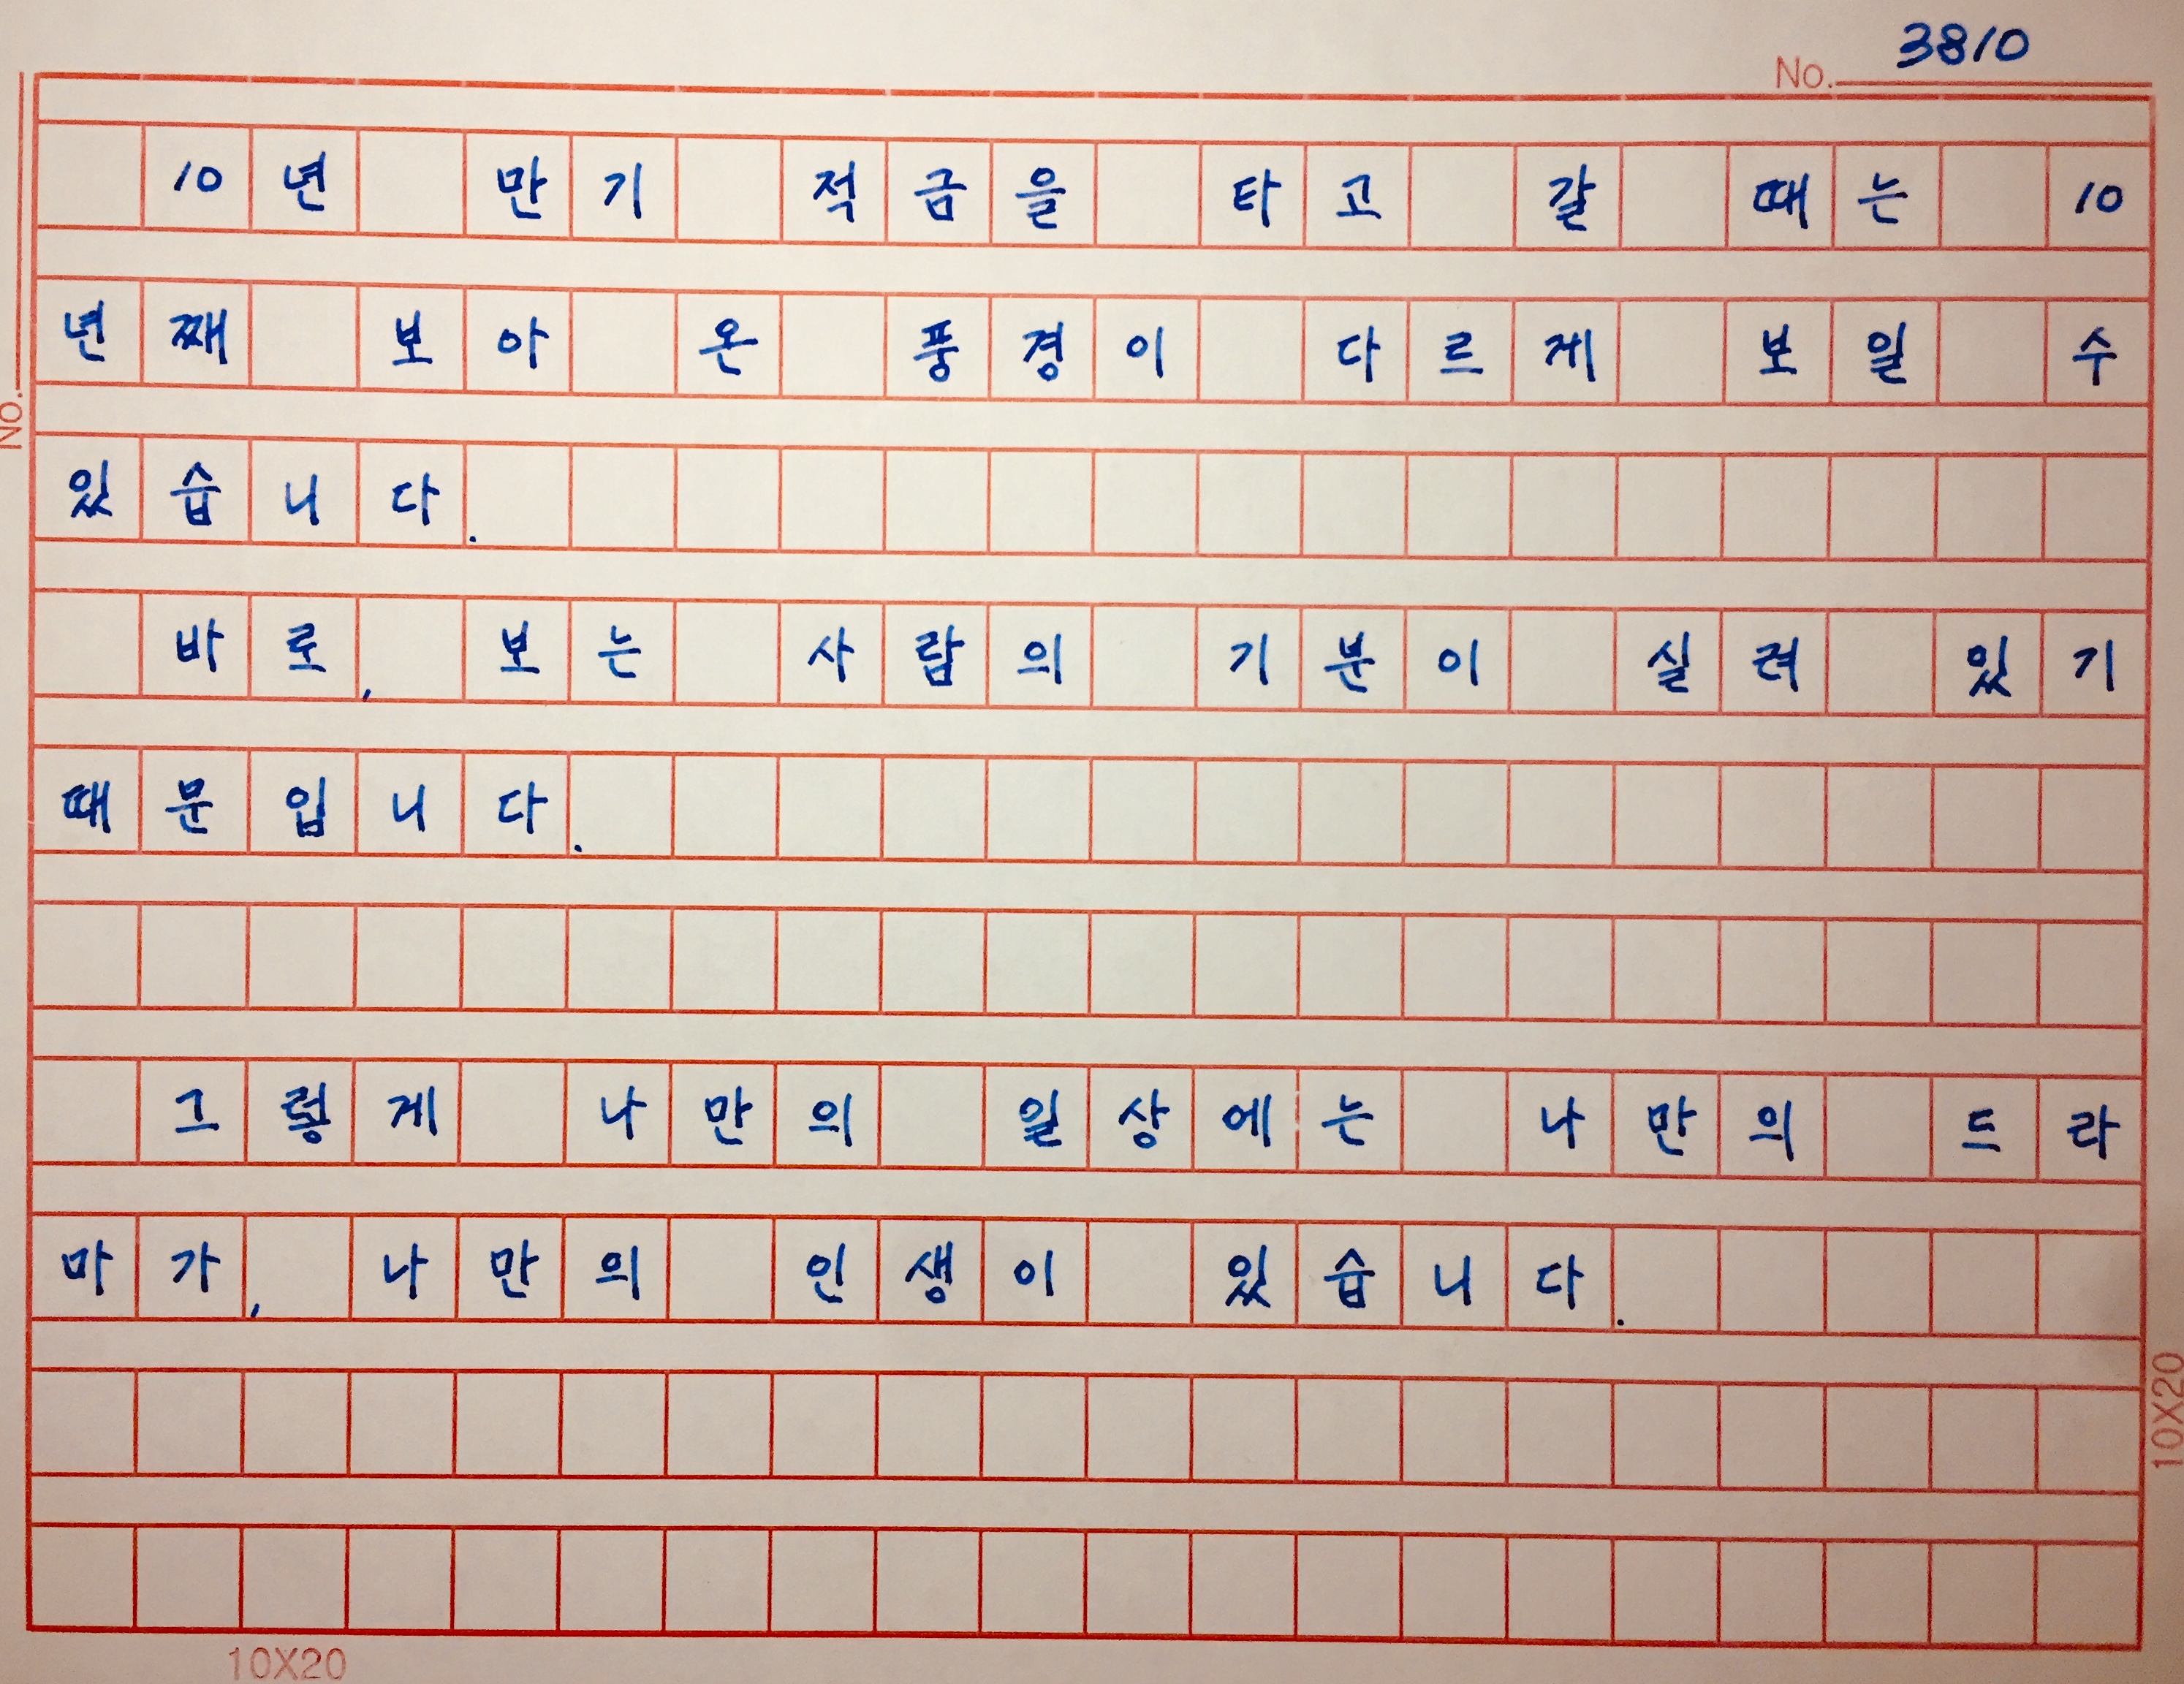 No. 3810
10년 만기 적금을 타고 갈 때는 10
년째 보아 온 풍경이 다르게 보일 수
있습니다.
바로, 보는 사람의 기분이 실려 있기
때문입니다.
그렇게 나만의 일상에는 나만의 드라
마가, 나만의 인생이 있습니다.
10X20
No.
10X20